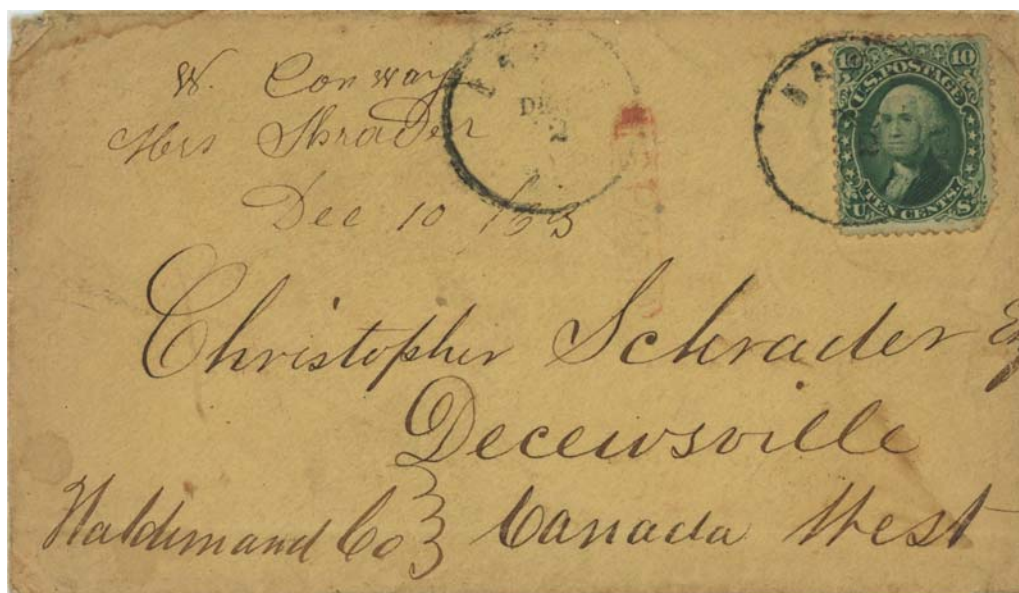 W. Conway
Mrs Shrader
Dec 10 / 63
DEC
2
10 10
U.S. POSTAGE
TEN CENTS.
U S
Christopher Schrader Esq
Decewsville
Haldimand Co Canada West